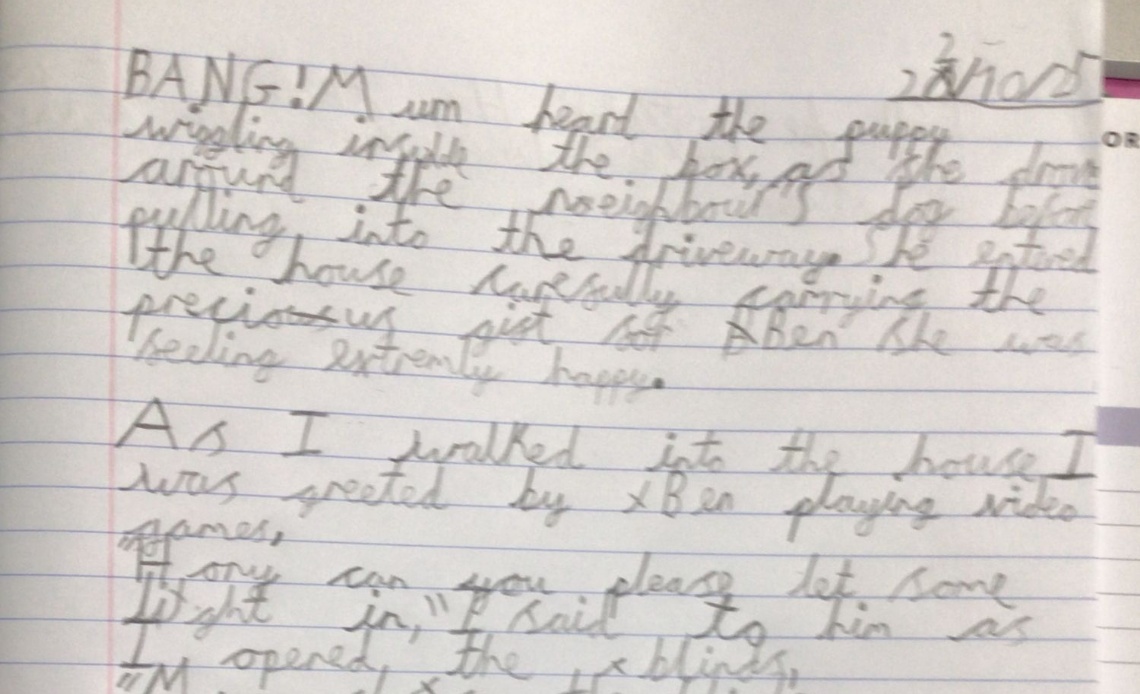 BANG! Mum heard the puppy
wiggling inside the box, as she drove
around the neighbour's dog before
pulling into the driveway. She entired
the house carefully carrying the
precious gift for Ben she was
feeling extremly happy.
As I walked into the house I
was greeted by Ben playing video
games,
"Hony can you please let some
light in," I said to him as
I opened the blinds,
"M
OR